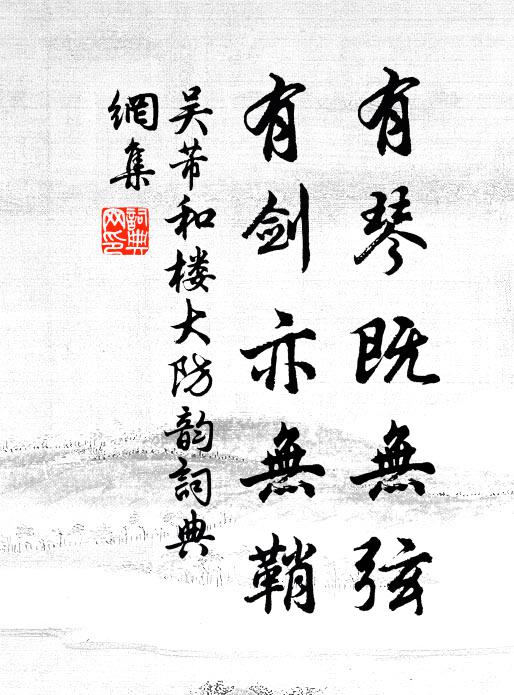 有琴既無弦
有剑亦無鞘
吴芾和楼大防韵詞典
網集
詞典
网印